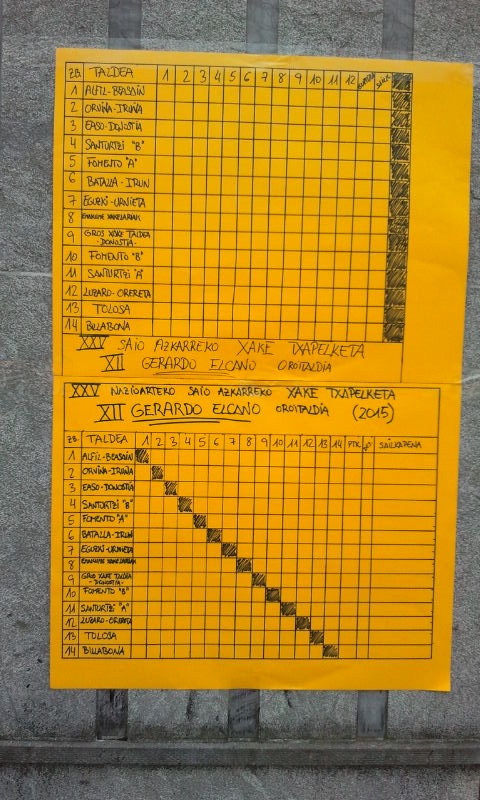 ZB. TALDEA 1 2 3 4 5 6 7 8 9 10 11 12
1 ALFIL-BEASAIN
2 ORVINA-IRUÑA
3 EASO-DONOSTIA
4 SANTURTZI "B"
5 FOMENTO "A"
6 BATALLA-IRUN
7 EGUZKI-URNIETA
8
9 GROS XAKE TALDEA
-DONOSTIA-
10 FOMENTO "B"
11 SANTURTZI "A"
12 LUZARO-ORERETA
13 TOLOSA
14 BILLABONA
XXV SAIO AZKARREKO XAKE TXAPELKETA
XII GERARDO ELCANO OROITALDIA
XXV NAZIOARTEKO SAIO AZKARREKO XAKE TXAPELKETA
XII GERARDO ELCANO OROITALDIA (2015)
ZB. TALDEA 1 2 3 4 5 6 7 8 9 10 11 12 13 14 PTK SAILKAPENA
1 ALFIL-BEASAIN
2 ORVINA-IRUÑA
3 EASO-DONOSTIA
4 SANTURTZI "B"
5 FOMENTO "A"
6 BATALLA-IRUN
7 EGUZKI-URNIETA
8
9 GROS XAKE TALDEA
-DONOSTIA-
10 FOMENTO "B"
11 SANTURTZI "A"
12 LUZARO-ORERETA
13 TOLOSA
14 BILLABONA